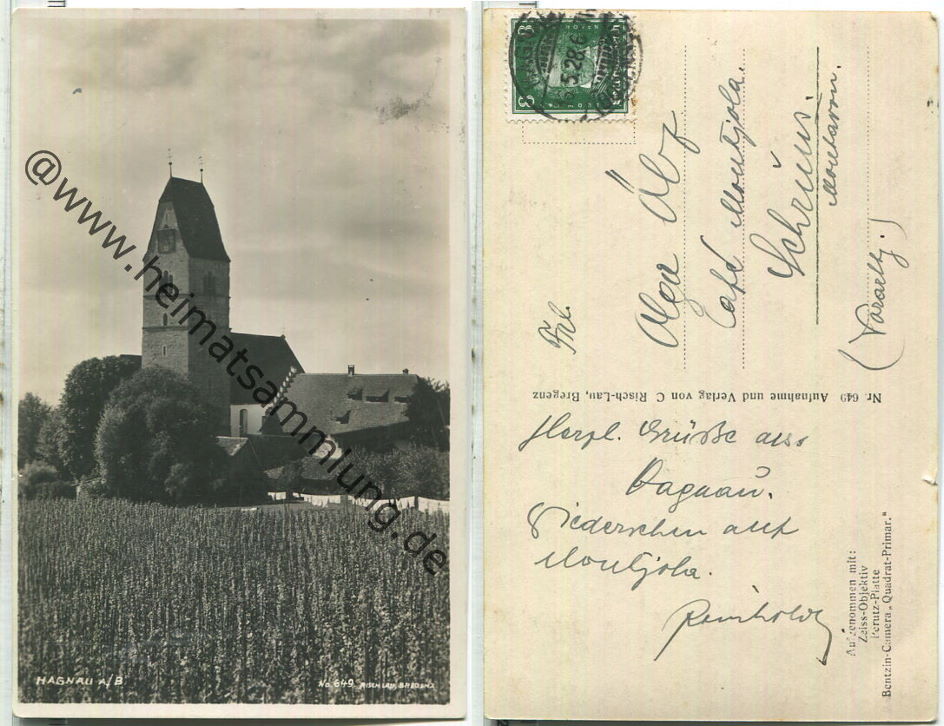 @www.heimatsammlung.de
HAGNAU A/B.
No. 649. RISCH-LAU, BREGENZ
8 8
5.29.6
Frl.
Olga
Café Montjola.
Schruns.
Montavon.
(Vorarlg.)
Nr. 649 Aufnahme und Verlag von C Risch-Lau, Bregenz
Herzl. Grüße aus
Hagnau.
Wiedersehen auf
Montjola.
Reinhold
Aufgenommen mit:
Zeiss-Objektiv
Perutz-Platte
Bentzin-Camera „Quadrat-Primar."